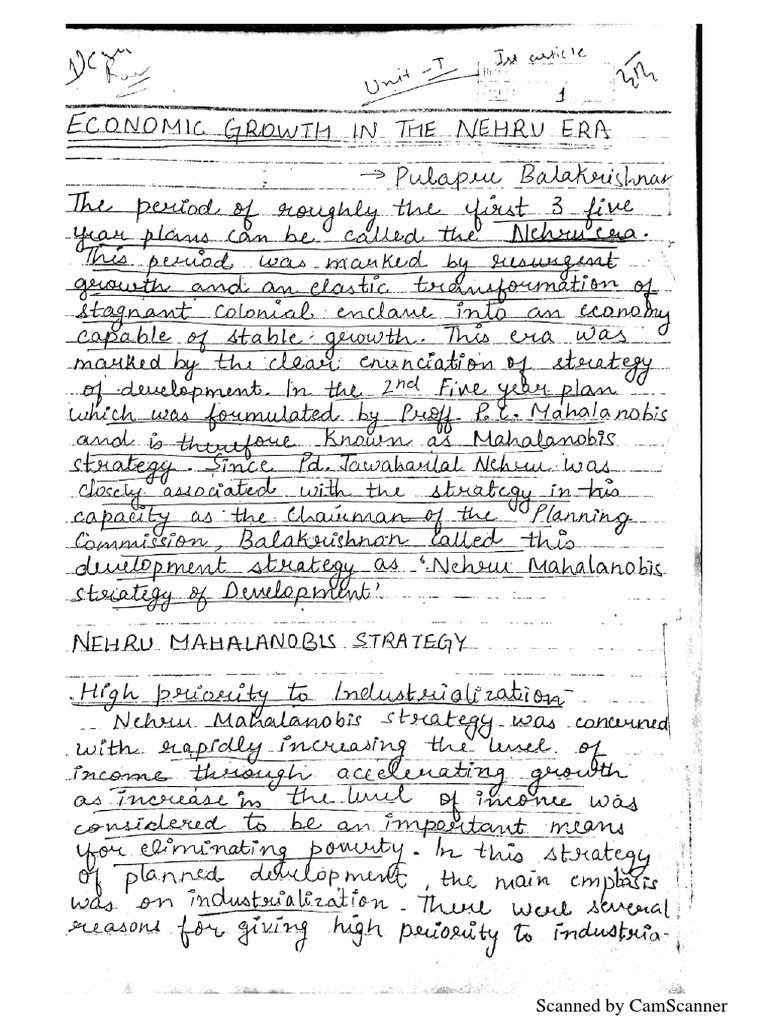 Unit-I
Ist article
1
ECONOMIC GROWTH IN THE NEHRU ERA
→ Pulapru Balakrishnan
The period of roughly the first 3 five
year plans can be called the Nehru era.
This period was marked by resurgent
growth and an elastic transformation of
stagnant colonial enclave into an economy
capable of stable growth. This era was
marked by the clear enunciation of strategy
of development. In the 2nd Five year plan
which was formulated by Proff P.C. Mahalanobis
and is therefore known as Mahalanobis
strategy. Since Pd. Jawaharlal Nehru was
closely associated with the strategy in his
capacity as the Chairman of the Planning
Commission, Balakrishnan called this
development strategy as 'Nehru Mahalanobis
strategy of Development'.
NEHRU MAHALANOBIS STRATEGY
High priority to Industrialization-
Nehru Mahalanobis strategy was concerned
with rapidly increasing the level of
income through accelerating growth
as increase in the level of income was
considered to be an important means
for eliminating poverty. In this strategy
of planned development, the main emphasis
was on industrialization. There were several
reasons for giving high priority to industria-
Scanned by CamScanner